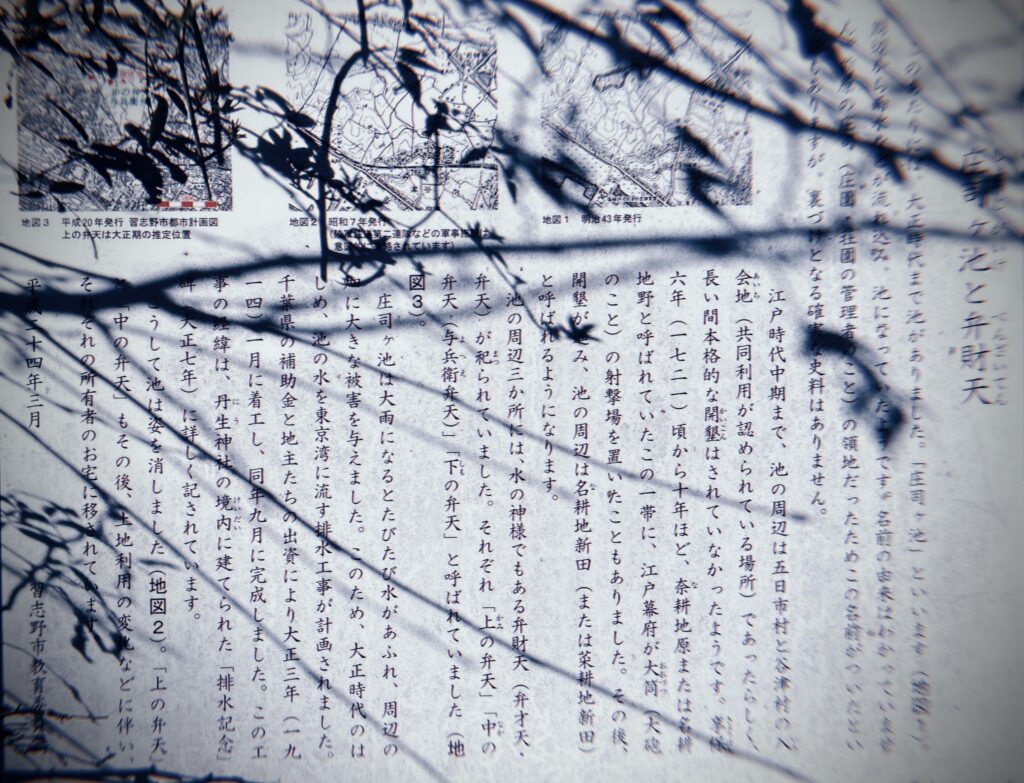 庄司ヶ池と弁財天
このあたりには、大正時代まで池がありました。「庄司ヶ池」といいます（地図1）。
周辺から雨水が流れ込み、池になっていたようです。名前の由来はわかっていませ
（庄園・荘園の管理者のこと）の領地だったためこの名前がついたとい
もありますが、裏づけとなる確実な史料はありません。
江戸時代中期まで、池の周辺は五日市村と谷津村の入
会地（共同利用が認められている場所）であったらしく、
長い間本格的な開墾はされていなかったようです。享保
六年（一七二一）頃から十年ほど、奈耕地原または名耕
地野と呼ばれていたこの一帯に、江戸幕府が大筒（大砲
のこと）の射撃場を置いたこともありました。その後、
開墾が進み、池の周辺は名耕地新田（または菜耕地新田）
と呼ばれるようになります。
池の周辺三か所には、水の神様でもある弁財天（弁才天、
弁天）が祀られていました。それぞれ「上の弁天」「中の
弁天（与兵衛弁天）」「下の弁天」と呼ばれていました（地
図3）。
庄司ヶ池は大雨になるとたびたび水があふれ、周辺の
に大きな被害を与えました。このため、大正時代のは
じめ、池の水を東京湾に流す排水工事が計画されました。
千葉県の補助金と地主たちの出資により大正三年（一九
一四）一月に着工し、同年九月に完成しました。この工
事の経緯は、丹生神社の境内に建てられた「排水記念
碑」（大正七年）に詳しく記されています。
こうして池は姿を消しました（地図2）。「上の弁天」
と「中の弁天」もその後、土地利用の変化などに伴い、
それぞれの所有者のお宅に移されています。
平成二十四年三月
習志野市教育委員会
地図1 明治43年発行
地図2 昭和7年発行
地図3 平成20年発行 習志野市都市計画図
上の弁天は大正期の推定位置